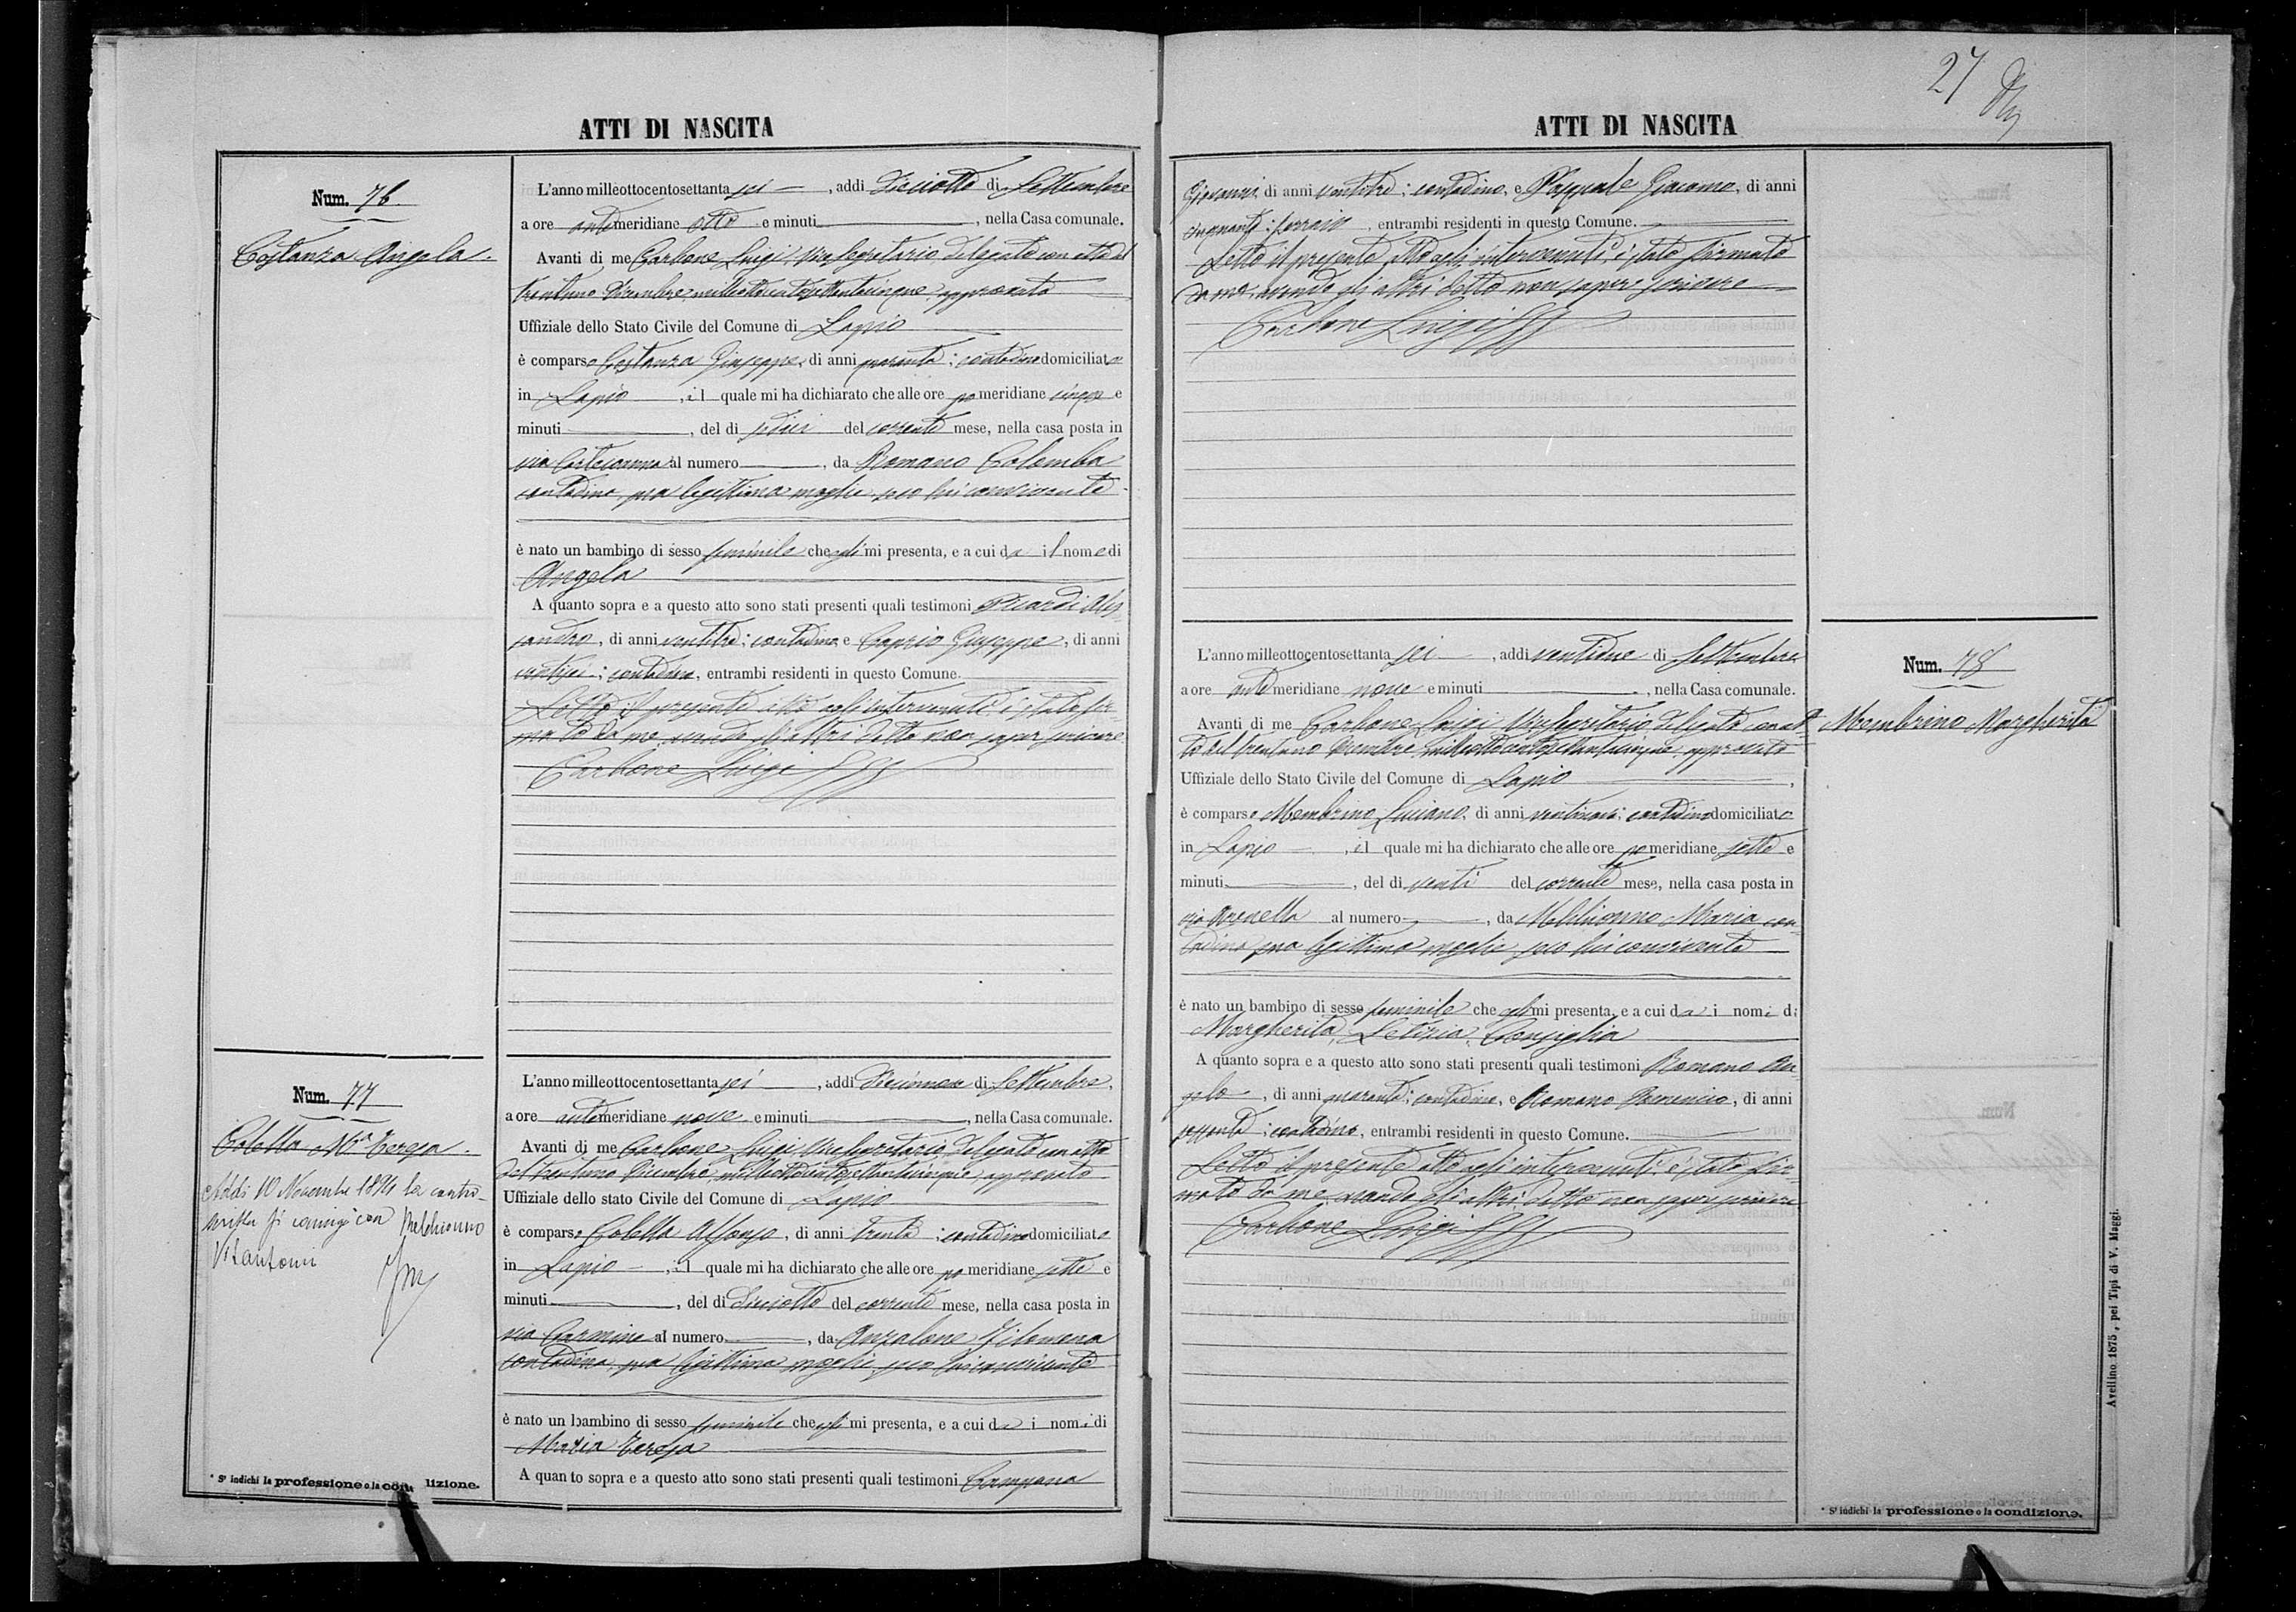 ATTI DI NASCITA
Num. 76
Costanza Angela.
L'anno milleottocentosettanta sei, addi diciotto di Settembre
a ore antimeridiane otto e minuti, nella Casa comunale.
Avanti di me Carbone Luigi, Vicesegretario delegato con atto del
trentuno Dicembre milleottocentosettantacinque, approvato
Uffiziale dello Stato Civile del Comune di Lapio
è comparso Costanza Giuseppe, di anni quaranta; contadino domiciliato
in Lapio, il quale mi ha dichiarato che alle ore pomeridiane cinque e
minuti, del di sedici del corrente mese, nella casa posta in
via al numero, da Romano Colomba
contadina, sua legittima moglie, seco lui convivente
è nato un bambino di sesso feminile che egli mi presenta, e a cui da il nome di
Angela
A quanto sopra e a questo atto sono stati presenti quali testimoni Picardi Ales-
sandro, di anni ventitre; contadino e Caprio Giuseppe, di anni
ventisei; contadino, entrambi residenti in questo Comune.
Letto il presente atto agli intervenuti è stato fir-
mato da me, avendo gli altri detto non saper scrivere
Carbone Luigi
Num. 77
Coletta Mª Teresa.
Addi 10 Novembre 1894 la contro-
scritta si coniugò con Melchionno
Vitantonio
L'anno milleottocentosettanta sei, addi diciannove di Settembre,
a ore antimeridiane nove e minuti, nella Casa comunale.
Avanti di me Carbone Luigi, Vicesegretario, delegato con atto
del trentuno Dicembre, milleottocentosettantacinque, approvato
Uffiziale dello stato Civile del Comune di Lapio
è comparso Coletta Alfonso, di anni trenta; contadino domiciliato
in Lapio, il quale mi ha dichiarato che alle ore pomeridiane sette e
minuti, del di diciotto del corrente mese, nella casa posta in
via Carmine al numero, da Anzalone Filomena
contadina, sua legittima moglie, seco lui convivente
è nato un bambino di sesso feminile che egli mi presenta, e a cui da i nomi di
Maria Teresa
A quanto sopra e a questo atto sono stati presenti quali testimoni Campana
* S' indichi la professione o la condizione.
27
ATTI DI NASCITA
Giovanni, di anni ventitre; contadino, e Pasquale Giacomo, di anni
cinquanta; ferraio, entrambi residenti in questo Comune.
Letto il presente atto agli intervenuti, è stato firmato
da me, avendo gli altri detto non sapere scrivere
Carbone Luigi
Num. 78
Membrino Margherita
L'anno milleottocentosettanta sei, addi ventidue di Settembre
a ore antimeridiane nove e minuti, nella Casa comunale.
Avanti di me Carbone Luigi Vicesegretario delegato con at-
to del trentuno Dicembre milleottocentosettantacinque, approvato
Uffiziale dello Stato Civile del Comune di Lapio,
è comparso Membrino Luciano, di anni contadino domiciliato
in Lapio, il quale mi ha dichiarato che alle ore pomeridiane sette e
minuti, del di venti del corrente mese, nella casa posta in
via Arenella al numero, da Melchionno Maria con-
tadina sua legittima moglie, seco lui convivente
è nato un bambino di sesso feminile che egli mi presenta, e a cui da i nomi di
Margherita, Letizia, Consiglia
A quanto sopra e a questo atto sono stati presenti quali testimoni Romano An-
gelo, di anni quaranta; contadino, e Romano Domenico, di anni
sessanta; contadino, entrambi residenti in questo Comune.
Letto il presente atto agli intervenuti, è stato fir-
mato da me, avendo gli altri detto non saper scrivere
Carbone Luigi
Avellino 1875, pei Tipi di V. Maggi.
* S' indichi la professione o la condizione.